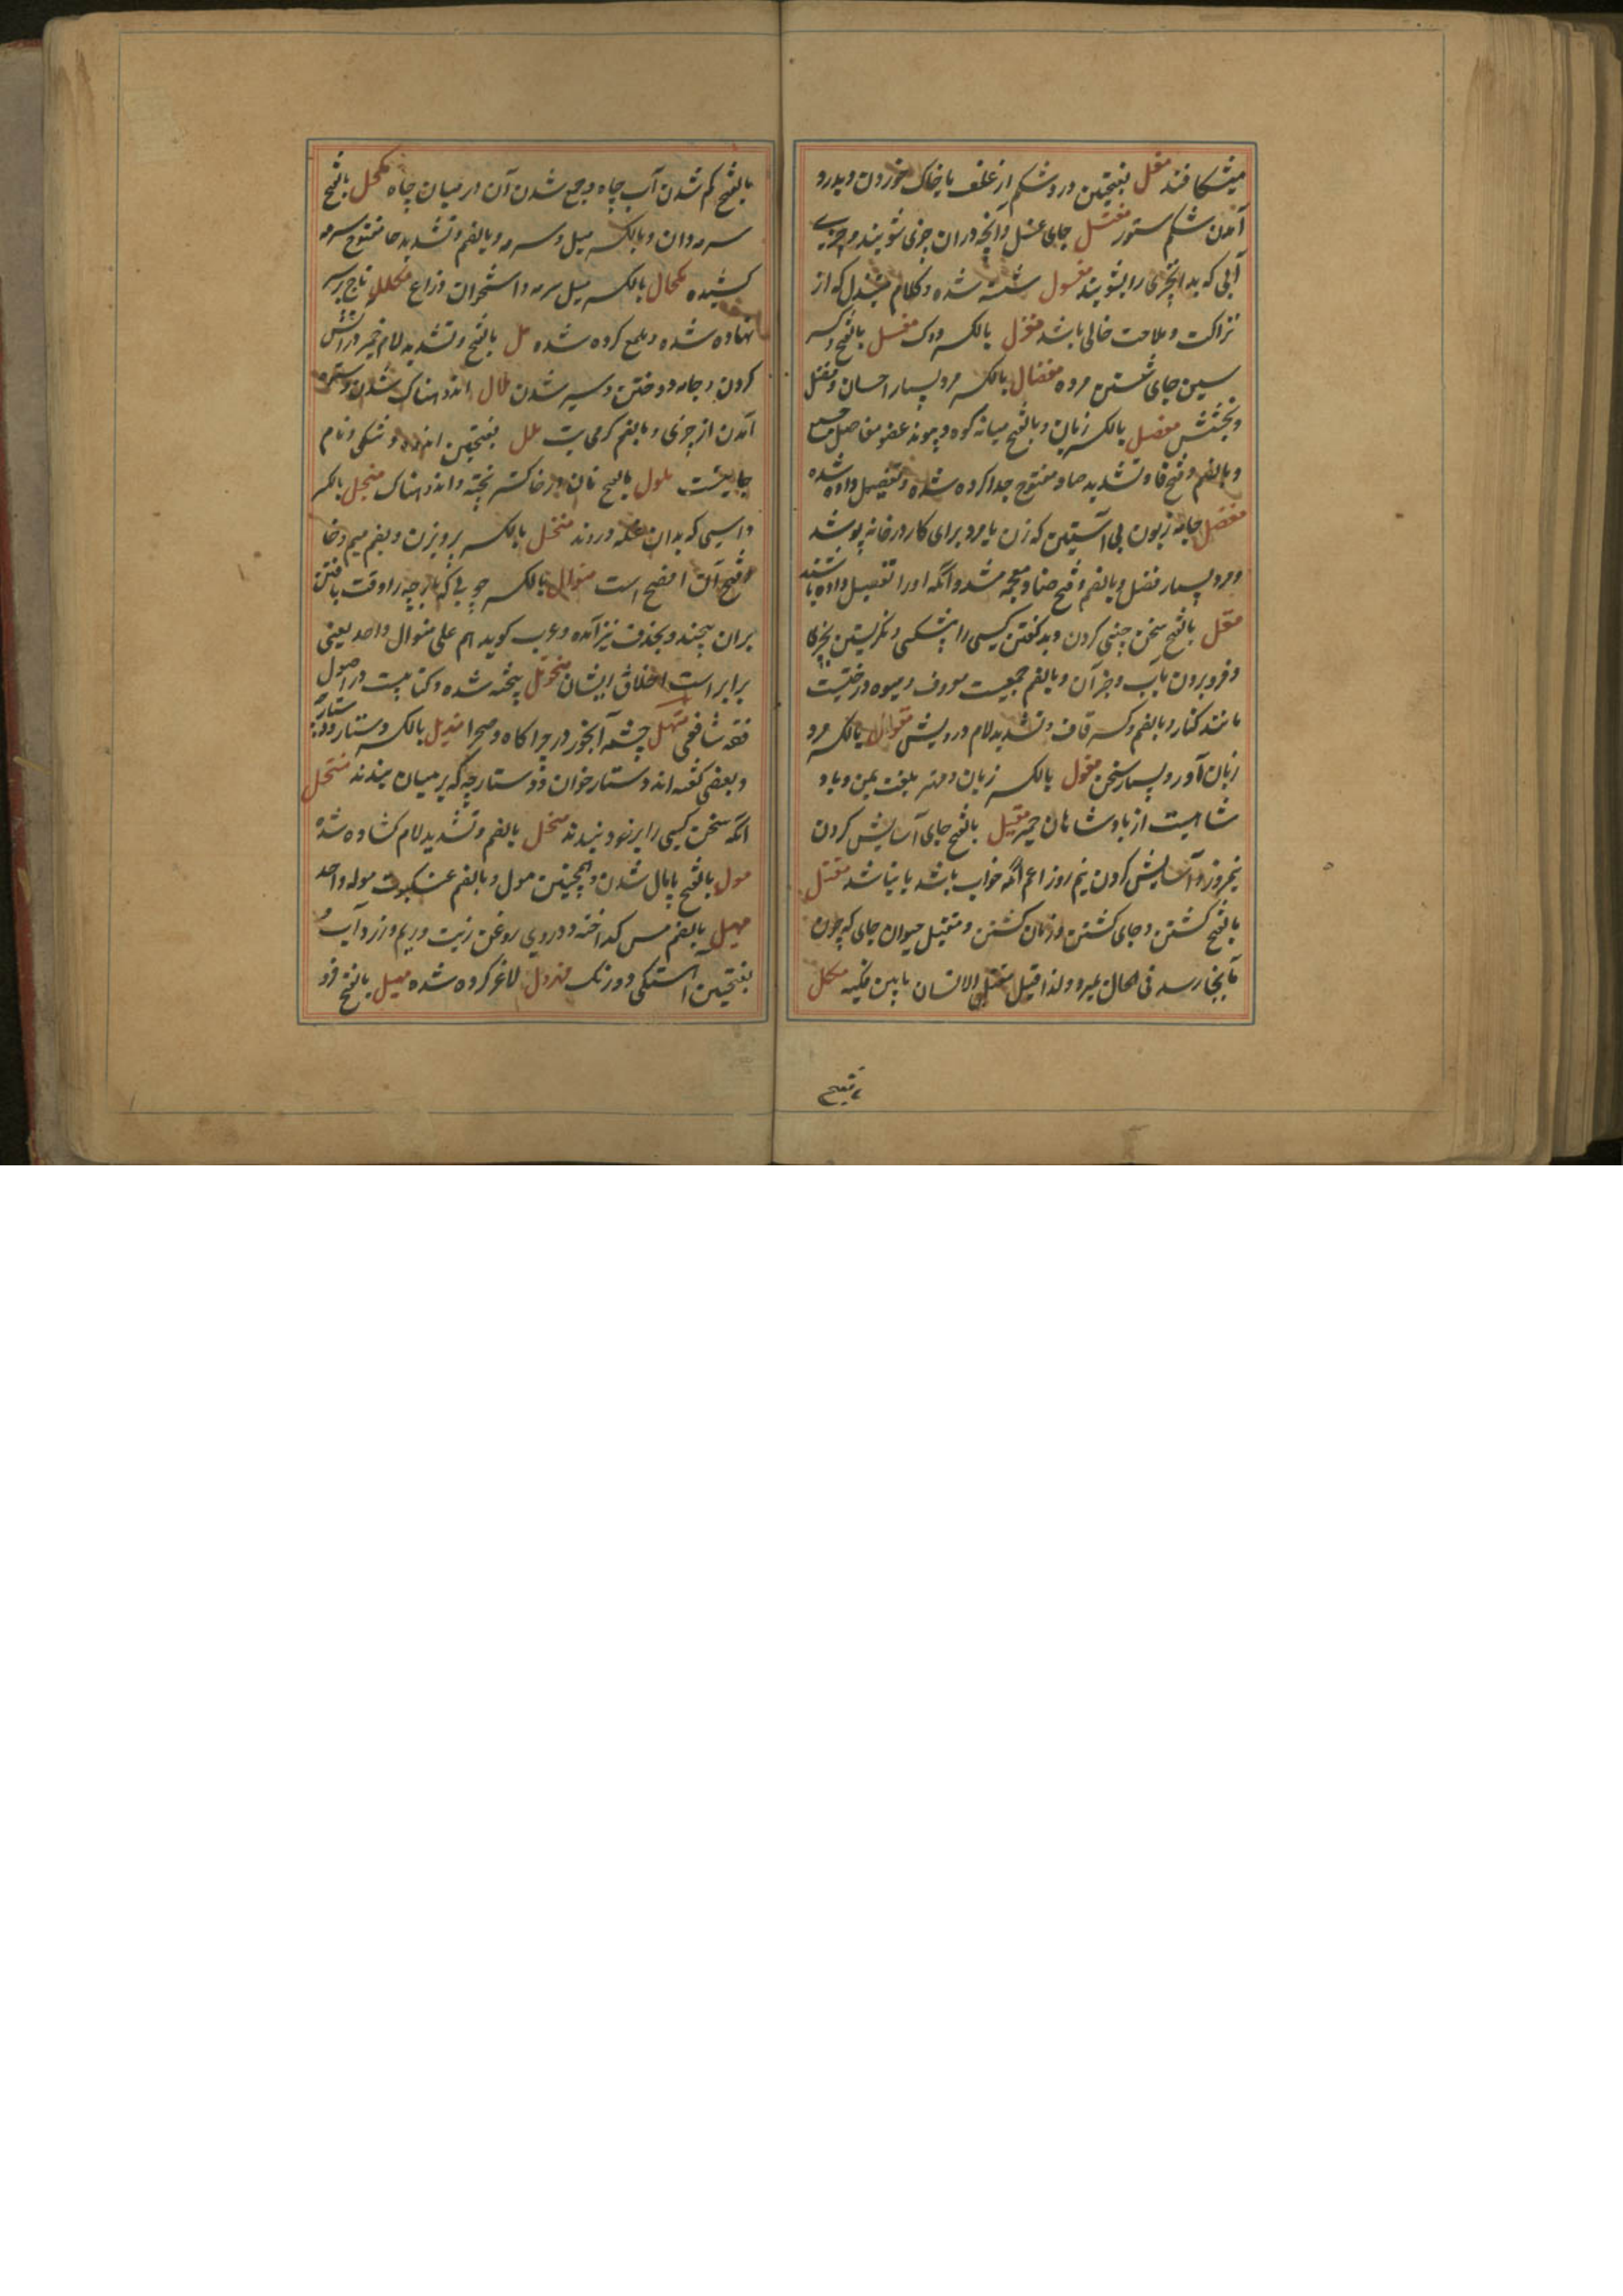 میشکافند مغل بفتحتین درد شکم از علف با خاک خوردن و بدرد
آمدن شکم ستور مغتسل جای غسل و آنچه دران چیزی شویند و
آبی که بد انچیزی را بشویند مغسول شسته شده و کلام مبتذل که از
نزاکت و ملاحت خالی باشد مغزل بالکسر دوک مغسل بالفتح و کسر
سین جای شستن مرده مفضال بالکسر مرد بسیار احسان و فضل
و بخشش مفصل بالکسر زبان و بالفتح میانه کوه و پیوند عضو مفاصل جمع
و بالضم و فتح فا و تشدید صاد مفتوح جدا کرده شده و تفصیل داده شده
مفضل جامه زبون بی آستین که زن یا مرد برای کار در خانه پوشد
و مرد بسیار فضل و بالضم و فتح ضاد معجمه مشدد آنکه او را تفضیل داده باشند
مقل بالفتح سخن چینی کردن و بد گفتن کسی را پیشکسی و نگریستن بچیزی
و فرو بردن بآب و جز آن و بالضم صمغیست معروف و میوه درختیست
مانند کنار و بالضم و کسر قاف و تشدید لام درویش مقوال بالکسر مرد
زبان آور و بسیار سخن مقول بالکسر زبان و مهتر بلغت یمن و پاد
شاهیست از پادشاهان حمیر مقیل بالفتح جای آسایش کردن
نیمروز و آسایش کردن نیم روز اعم آنکه خواب باشد یا نباشد مقتل
بالفتح کشتن و جای کشتن و زمان کشتن و مقتل حیوان جای که چون
بآنجا رسد فی الحال بمیرد و لذا قیل مقتل الانسان ما بین فکیه مکل
بالفتح کم شدن آب چاه و جمع شدن آن در میان چاه مکحل بالفتح
سرمه دان و بالکسر میل و سرمه و بالضم و تشدید حا مفتوح سرمه
کشیده مکحال بالکسر میل سرمه و استخوان ذراع مکلل تاج بر سر
نهاده شده و ملمع کرده شده مل بالفتح و تشدید لام خمیر در آتش
کردن و جامه دوختن و سیر شدن ملال اندوهناک شدن و بستوه
آمدن از چیزی و بالضم گرمی تب ملل بفتحتین اندوه و تنگی و نام
جاییست ملول بالفتح نان در خاکستر پخته و اندوهناک منجل بالکسر
داسی که بدان غله دروند منخل بالکسر پرویزن و بضم میم و خا
و فتح آن افصح است منوال بالکسر چوبی که پارچه را وقت بافتن
بران پیچند و بحذف نیز آمده و عرب گوید هم علی منوال واحد یعنی
برابر است اخلاق ایشان منخول بیخته شده و کتابیست در اصول
فقه شافعی منهل چشمه آبخور در چراگاه و صحرا مندیل بالکسر دستار و دستارچه
و بعضی گفته اند دستار خوان و دستارچه که بر میان بندند منتحل
آنکه سخن کسی را بر خود بندد منحل بالضم و تشدید لام گشاده شده
مول بالفتح پامال شدن و همچنین مول و بالضم عنکبوت موله واحد
مهیل بالضم مس گداخته و دردی روغن زیت و ریم و زرد آب و
بفتحتین آهستگی و درنگ مهزول لاغر کرده شده مهیل بالفتح فرو
بالفتح